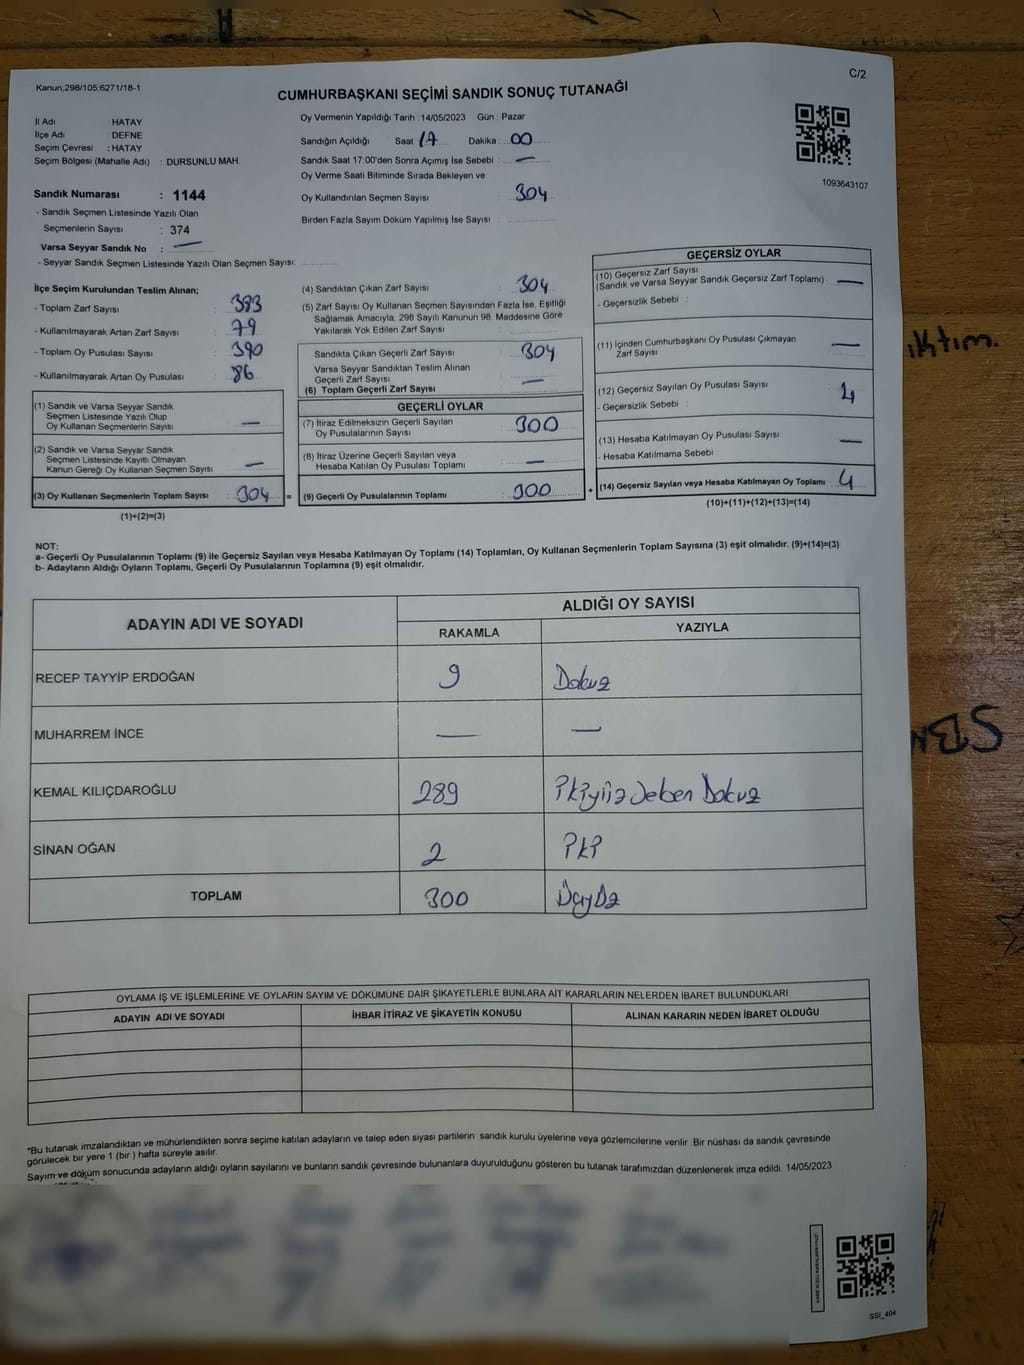 Kanun;298/105;6271/18-1
C/2
CUMHURBAŞKANI SEÇİMİ SANDIK SONUÇ TUTANAĞI
İl Adı : HATAY
İlçe Adı DEFNE
Seçim Çevresi : HATAY
Seçim Bölgesi (Mahalle Adı) : DURSUNLU MAH.
Oy Vermenin Yapıldığı Tarih : 14/05/2023 Gün : Pazar
Sandığın Açıldığı Saat 17 Dakika : 00
Sandık Saat 17:00'den Sonra Açımış İse Sebebi : —
Oy Verme Saati Bitiminde Sırada Bekleyen ve
Oy Kullandırılan Seçmen Sayısı : 304
Birden Fazla Sayım Döküm Yapılmış İse Sayısı :
1093643107
Sandık Numarası : 1144
- Sandık Seçmen Listesinde Yazılı Olan
Seçmenlerin Sayısı : 374
Varsa Seyyar Sandık No : —
- Seyyar Sandık Seçmen Listesinde Yazılı Olan Seçmen Sayısı:
İlçe Seçim Kurulundan Teslim Alınan;
- Toplam Zarf Sayısı : 383
- Kullanılmayarak Artan Zarf Sayısı : 79
- Toplam Oy Pusulası Sayısı : 390
- Kullanılmayarak Artan Oy Pusulası : 86
(1) Sandık ve Varsa Seyyar Sandık
Seçmen Listesinde Yazılı Olup
Oy Kullanan Seçmenlerin Sayısı : —
(2) Sandık ve Varsa Seyyar Sandık
Seçmen Listesinde Kayıtlı Olmayan
Kanun Gereği Oy Kullanan Seçmen Sayısı : —
(3) Oy Kullanan Seçmenlerin Toplam Sayısı : 304 =
(1)+(2)=(3)
(4) Sandıktan Çıkan Zarf Sayısı : 304
(5) Zarf Sayısı Oy Kullanan Seçmen Sayısından Fazla İse, Eşitliği
Sağlamak Amacıyla; 298 Sayılı Kanunun 98. Maddesine Göre
Yakılarak Yok Edilen Zarf Sayısı :
Sandıkta Çıkan Geçerli Zarf Sayısı : 304
Varsa Seyyar Sandıktan Teslim Alınan
Geçerli Zarf Sayısı : —
(6) Toplam Geçerli Zarf Sayısı
GEÇERLİ OYLAR
(7) İtiraz Edilmeksizin Geçerli Sayılan
Oy Pusulalarının Sayısı : 300
(8) İtiraz Üzerine Geçerli Sayılan veya
Hesaba Katılan Oy Pusulası Toplamı : —
(9) Geçerli Oy Pusulalarının Toplamı : 300 +
GEÇERSİZ OYLAR
(10) Geçersiz Zarf Sayısı
(Sandık ve Varsa Seyyar Sandık Geçersiz Zarf Toplamı) : —
- Geçersizlik Sebebi :
(11) İçinden Cumhurbaşkanı Oy Pusulası Çıkmayan
Zarf Sayısı : —
(12) Geçersiz Sayılan Oy Pusulası Sayısı : 4
- Geçersizlik Sebebi :
(13) Hesaba Katılmayan Oy Pusulası Sayısı : —
- Hesaba Katılmama Sebebi :
(14) Geçersiz Sayılan veya Hesaba Katılmayan Oy Toplamı : 4
(10)+(11)+(12)+(13)=(14)
NOT:
a- Geçerli Oy Pusulalarının Toplamı (9) ile Geçersiz Sayılan veya Hesaba Katılmayan Oy Toplamı (14) Toplamları, Oy Kullanan Seçmenlerin Toplam Sayısına (3) eşit olmalıdır. (9)+(14)=(3)
b- Adayların Aldığı Oyların Toplamı, Geçerli Oy Pusulalarının Toplamına (9) eşit olmalıdır.
ADAYIN ADI VE SOYADI
ALDIĞI OY SAYISI
RAKAMLA YAZIYLA
RECEP TAYYİP ERDOĞAN 9 Dokuz
MUHARREM İNCE — —
KEMAL KILIÇDAROĞLU 289 İkiyüz seksen Dokuz
SİNAN OĞAN 2 İki
TOPLAM 300 Üçyüz
OYLAMA İŞ VE İŞLEMLERİNE VE OYLARIN SAYIM VE DÖKÜMÜNE DAİR ŞİKAYETLERLE BUNLARA AİT KARARLARIN NELERDEN İBARET BULUNDUKLARI
ADAYIN ADI VE SOYADI İHBAR İTİRAZ VE ŞİKAYETİN KONUSU ALINAN KARARIN NEDEN İBARET OLDUĞU
*Bu tutanak imzalandıktan ve mühürlendikten sonra seçime katılan adayların ve talep eden siyasi partilerin sandık kurulu üyelerine veya gözlemcilerine verilir .Bir nüshası da sandık çevresinde
görülecek bir yere 1 (bir ) hafta süreyle asılır.
Sayım ve döküm sonucunda adayların aldığı oyların sayılarını ve bunların sandık çevresinde bulunanlara duyurulduğunu gösteren bu tutanak tarafımızdan düzenlenerek imza edildi. 14/05/2023
SSI_404
iktim.